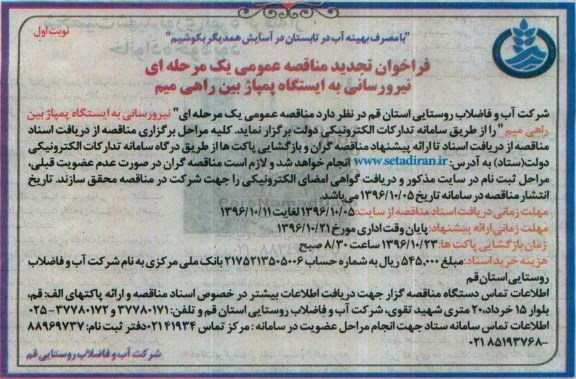 نوبت اول
"با مصرف بهینه آب در تابستان در آسایش همدیگر بکوشیم"
فراخوان تجدید مناقصه عمومی یک مرحله ای
نیرورسانی به ایستگاه پمپاژ بین راهی میم
شرکت آب و فاضلاب روستایی استان قم در نظر دارد مناقصه عمومی یک مرحله ای "نیرورسانی به ایستگاه پمپاژ بین
راهی میم" را از طریق سامانه تدارکات الکترونیکی دولت برگزار نماید. کلیه مراحل برگزاری مناقصه از دریافت اسناد
مناقصه از دریافت اسناد تا ارائه پیشنهاد مناقصه گران و بازگشایی پاکت ها از طریق درگاه سامانه تدارکات الکترونیکی
دولت(ستاد) به آدرس: www.setadiran.ir انجام خواهد شد و لازم است مناقصه گران در صورت عدم عضویت قبلی،
مراحل ثبت نام در سایت مذکور و دریافت گواهی امضای الکترونیکی را جهت شرکت در مناقصه محقق سازند. تاریخ
انتشار مناقصه در سامانه تاریخ ۱۳۹۶/۱۰/۰۵ می باشد.
مهلت زمانی دریافت اسناد مناقصه از سایت: ۱۳۹۶/۱۰/۰۵ لغایت ۱۳۹۶/۱۰/۱۱
مهلت زمانی ارائه پیشنهاد: پایان وقت اداری مورخ ۱۳۹۶/۱۰/۲۱
زمان بازگشایی پاکت ها: ۱۳۹۶/۱۰/۲۳ ساعت ۸/۳۰ صبح
هزینه خرید اسناد: مبلغ ۵۴۵,۰۰۰ ریال به شماره حساب ۲۱۷۵۲۱۳۵۰۵۰۰۶ بانک ملی مرکزی به نام شرکت آب و فاضلاب
روستایی استان قم
اطلاعات تماس دستگاه مناقصه گزار جهت دریافت اطلاعات بیشتر در خصوص اسناد مناقصه و ارائه پاکتهای الف: قم،
بلوار ۱۵ خرداد، ۲۰ متری شهید تقوی، شرکت آب و فاضلاب روستایی استان قم و تلفن: ۳۷۷۸۰۱۷۱ و ۳۷۷۸۰۱۷۲ - ۰۲۵
اطلاعات تماس سامانه ستاد جهت انجام مراحل عضویت در سامانه : مرکز تماس ۰۲۱۴۱۹۳۴ دفتر ثبت نام: ۸۸۹۶۹۷۳۷
-۰۲۱۸۵۱۹۳۷۶۸
شرکت آب و فاضلاب روستایی قم